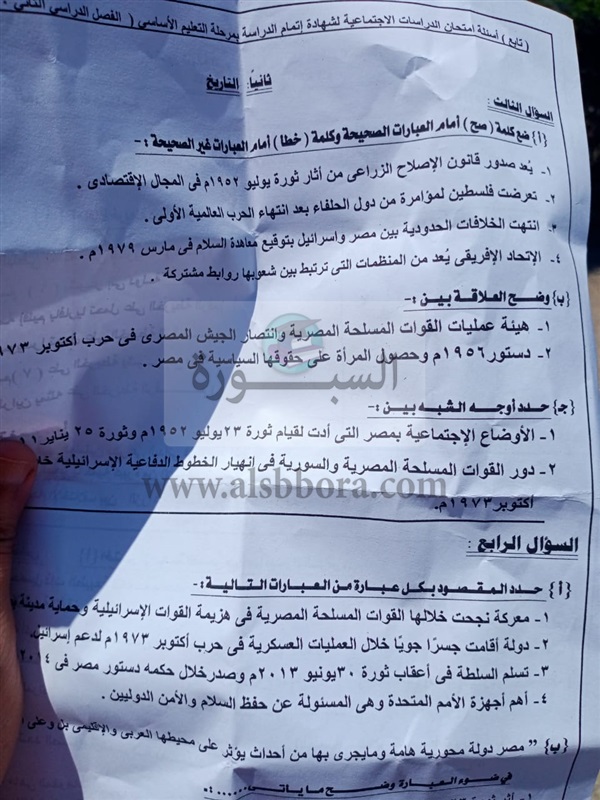 ( تابع ) أسئلة امتحان الدراسات الاجتماعية لشهادة إتمام الدراسة بمرحلة التعليم الأساسي ( الفصل الدراسي الثاني
ثانيًا: التاريخ
السؤال الثالث :
{أ} ضع كلمة ( صح ) أمام العبارات الصحيحة وكلمة ( خطا ) أمام العبارات غير الصحيحة :-
١- يُعد صدور قانون الإصلاح الزراعى من أثار ثورة يوليو ١٩٥٢م فى المجال الإقتصادى .
٢- تعرضت فلسطين لمؤامرة من دول الحلفاء بعد انتهاء الحرب العالمية الأولى .
٣- انتهت الخلافات الحدودية بين مصر واسرائيل بتوقيع معاهدة السلام فى مارس ١٩٧٩م .
٤- الإتحاد الإفريقى يُعد من المنظمات التى ترتبط بين شعوبها روابط مشتركة .
{ب} وضح العلاقة بين :-
١- هيئة عمليات القوات المسلحة المصرية وانتصار الجيش المصرى فى حرب أكتوبر ١٩٧٣
٢- دستور ١٩٥٦م وحصول المرأة على حقوقها السياسية فى مصر .
السبورة
{جـ} حدد أوجه الشبه بين :-
١- الأوضاع الإجتماعية بمصر التى أدت لقيام ثورة ٢٣يوليو ١٩٥٢م وثورة ٢٥ يناير
٢- دور القوات المسلحة المصرية والسورية فى إنهيار الخطوط الدفاعية الإسرائيلية
www.alsbbora.com
أكتوبر ١٩٧٣م.
السؤال الرابع :
{أ} حدد المقصود بكل عبارة من العبارات التالية :-
١- معركة نجحت خلالها القوات المسلحة المصرية فى هزيمة القوات الإسرائيلية وحماية مدينة
٢- دولة أقامت جسرًا جويًا خلال العمليات العسكرية فى حرب أكتوبر ١٩٧٣م لدعم إسرائيل.
٣- تسلم السلطة فى أعقاب ثورة ٣٠يونيو ٢٠١٣م وصدر خلال حكمه دستور مصر فى ٢٠١٤
٤- أهم أجهزة الأمم المتحدة وهى المسئولة عن حفظ السلام والأمن الدوليين .
{ب} " مصر دولة محورية هامة ومايجرى بها من أحداث يؤثر على محيطها العربى والإقليمى بل وعلى
فى ضوء العبارة وضح ما يأتى .....:-